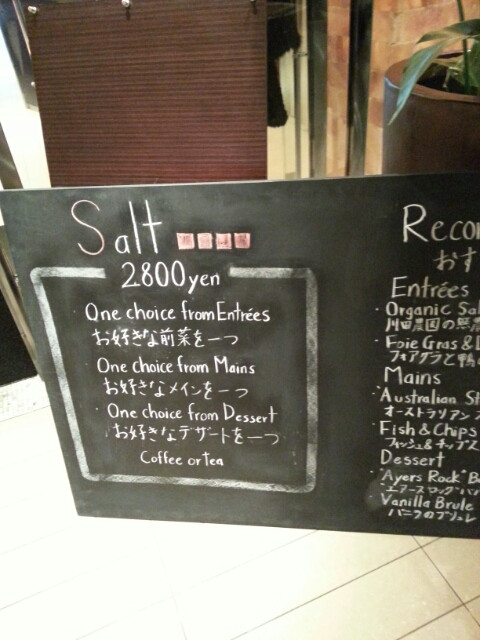 Salt
2800yen
One choice from Entrées
お好きな前菜を一つ
One choice from Mains
お好きなメインを一つ
One choice from Dessert
お好きなデザートを一つ
Coffee or tea
Entrées
Organic
川田農園の
Foie Gras &
フォアグラと鴨
Mains
Australian
オーストラリアン
Fish & Chips
フィッシュ&チップス
Dessert
"Ayers Rock"
"エアーズロック"
Vanilla Brule
バニラのブリュレ